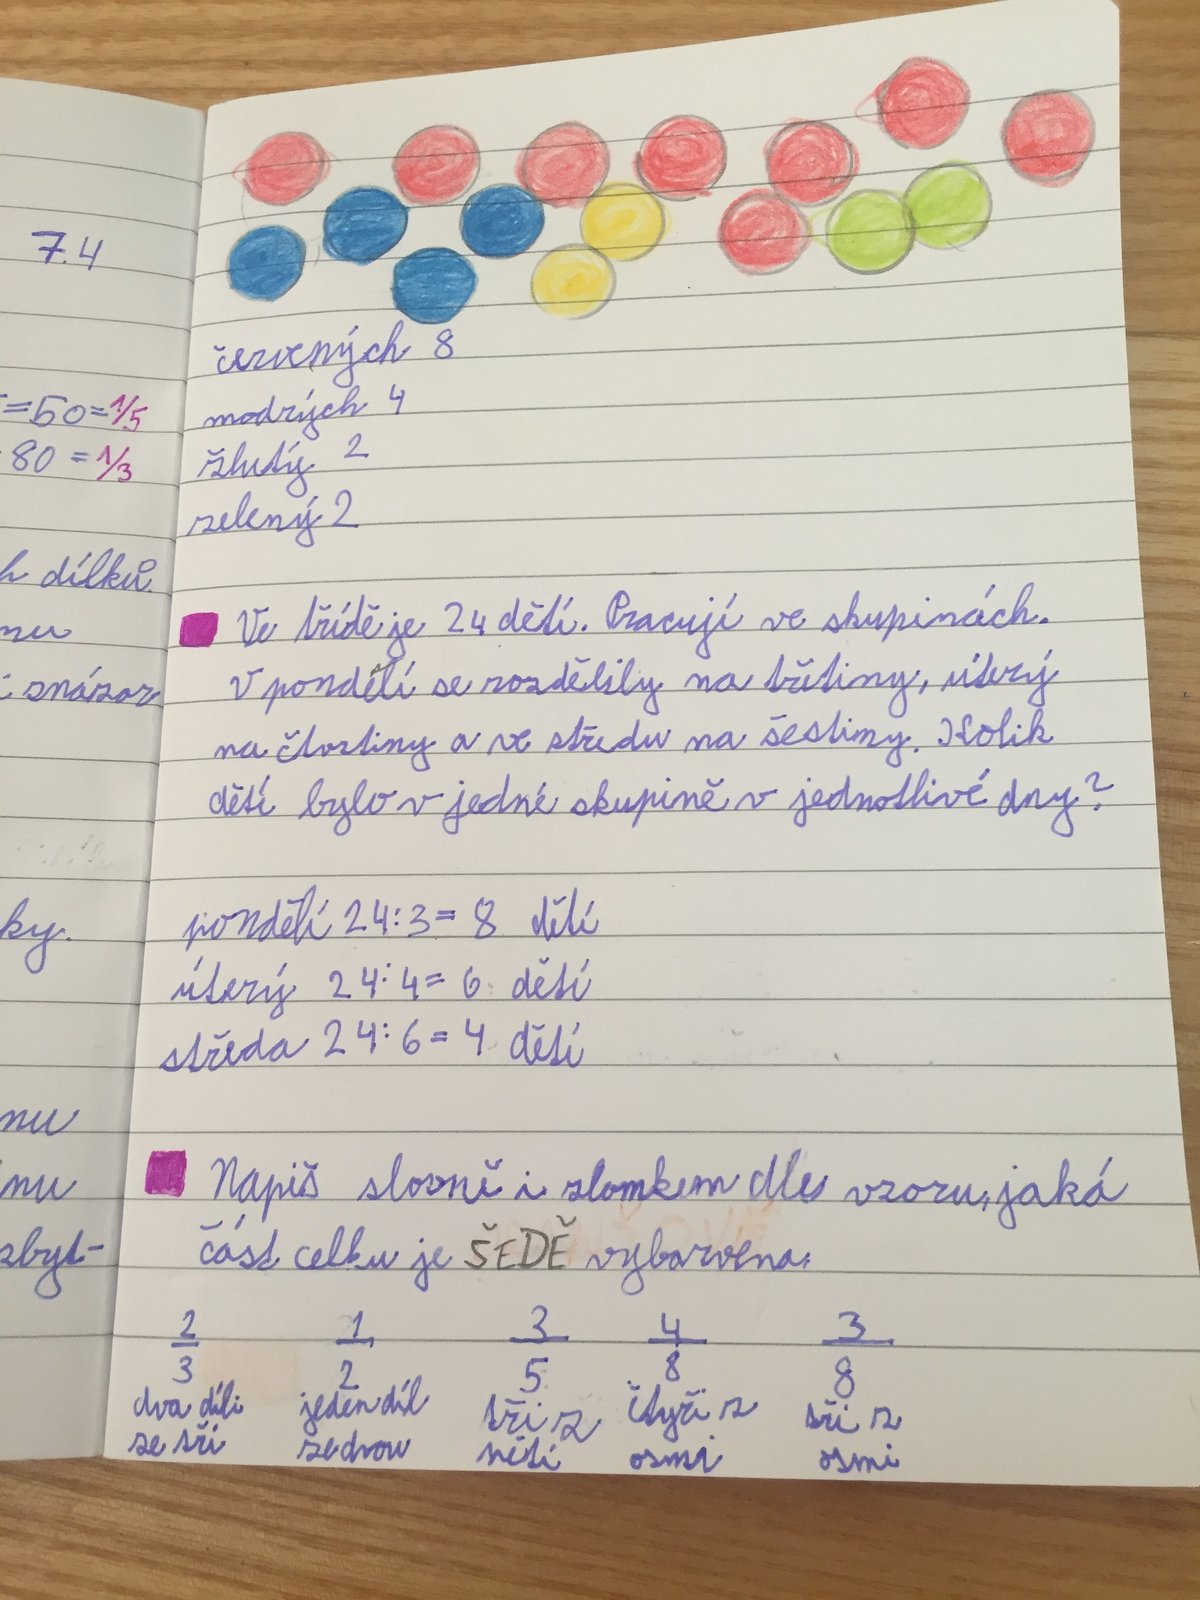 7.4
=50=1/5
80=1/3
h dílků.
nu
znázor
ky.
nu
inu
zbyt-
červených 8
modrých 4
žlutý 2
zelený 2
Ve třídě je 24 dětí. Pracují ve skupinách.
V pondělí se rozdělily na třetiny, úterý
na čtvrtiny a ve středu na šestiny. Kolik
dětí bylo v jedné skupině v jednotlivé dny?
pondělí 24:3= 8 dětí
úterý 24:4= 6 dětí
středa 24:6= 4 dětí
Napiš slovně i zlomkem dle vzoru, jaká
část celku je ŠEDĚ vybarvena.
2/3 1/2 3/5 4/8 3/8
dva díli jeden díl tři z čtyři z tři z
ze tří ze dvou pěti osmi osmi